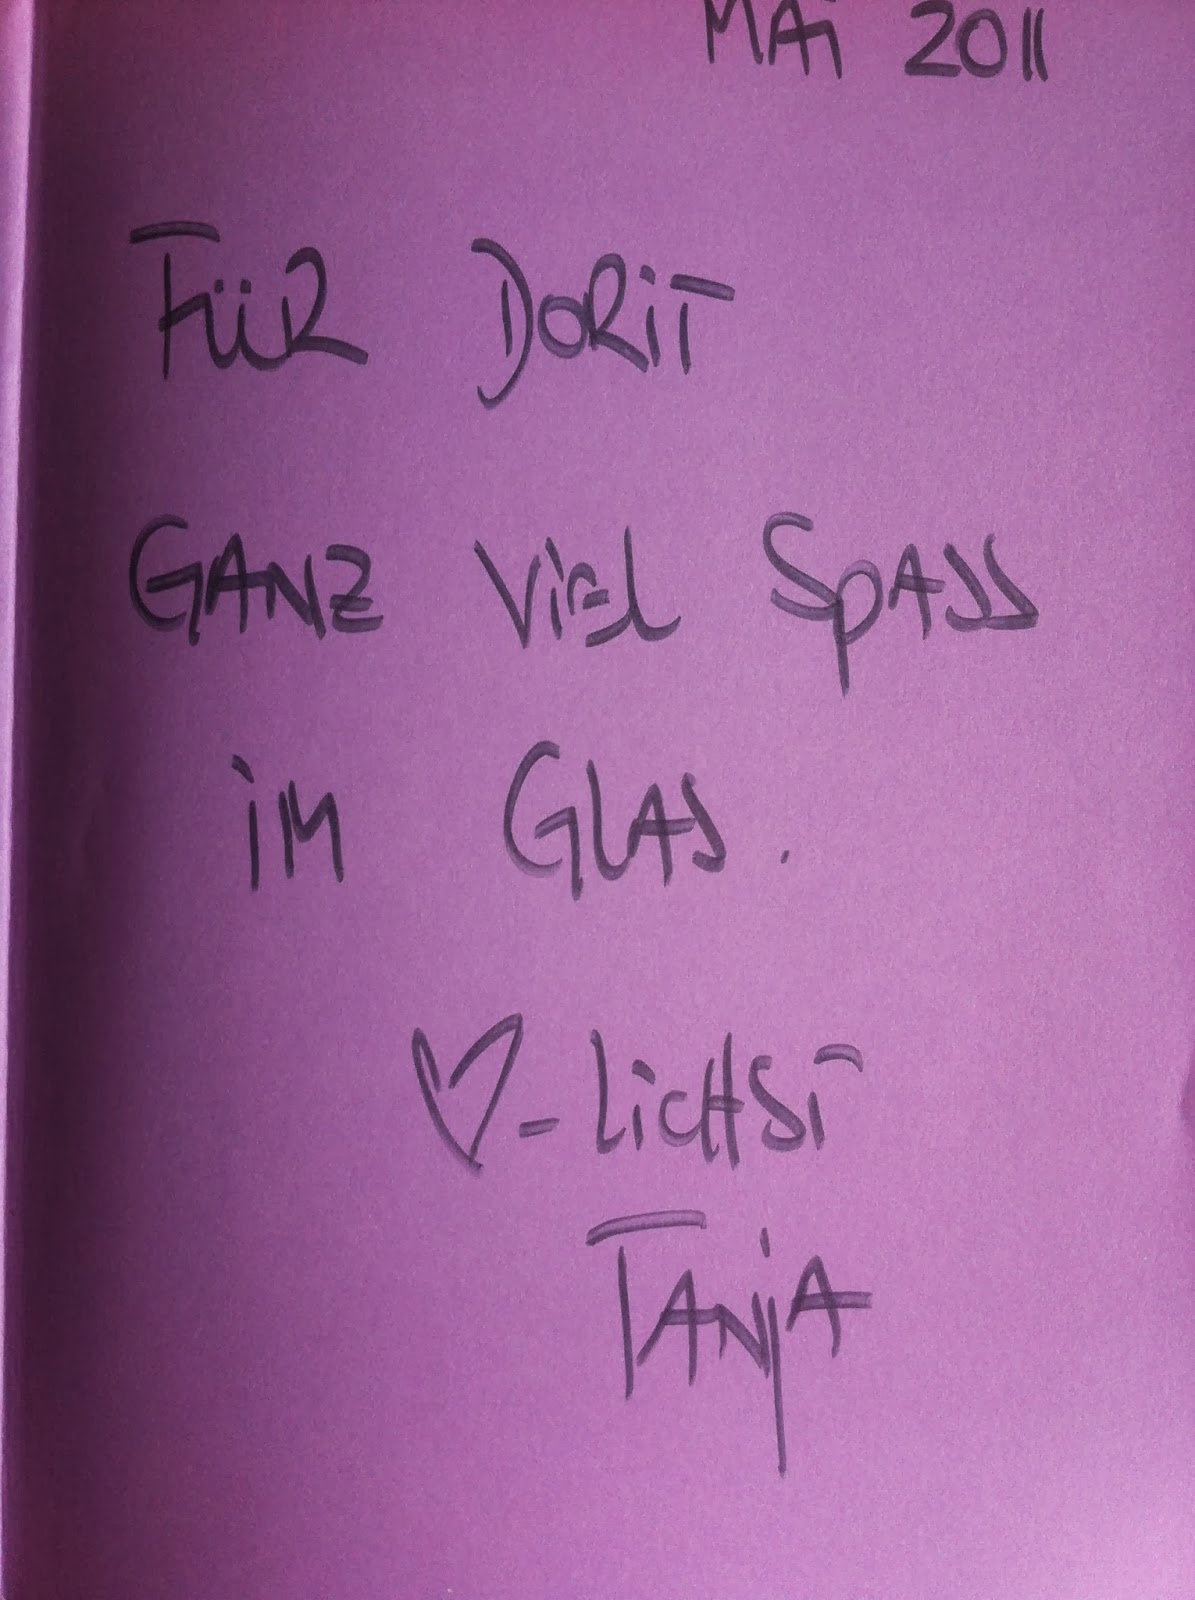 MAi 2011
FÜR DORiT
GANZ ViEL SPASS
iM GLAS.
♡-LiCHST
TANjA